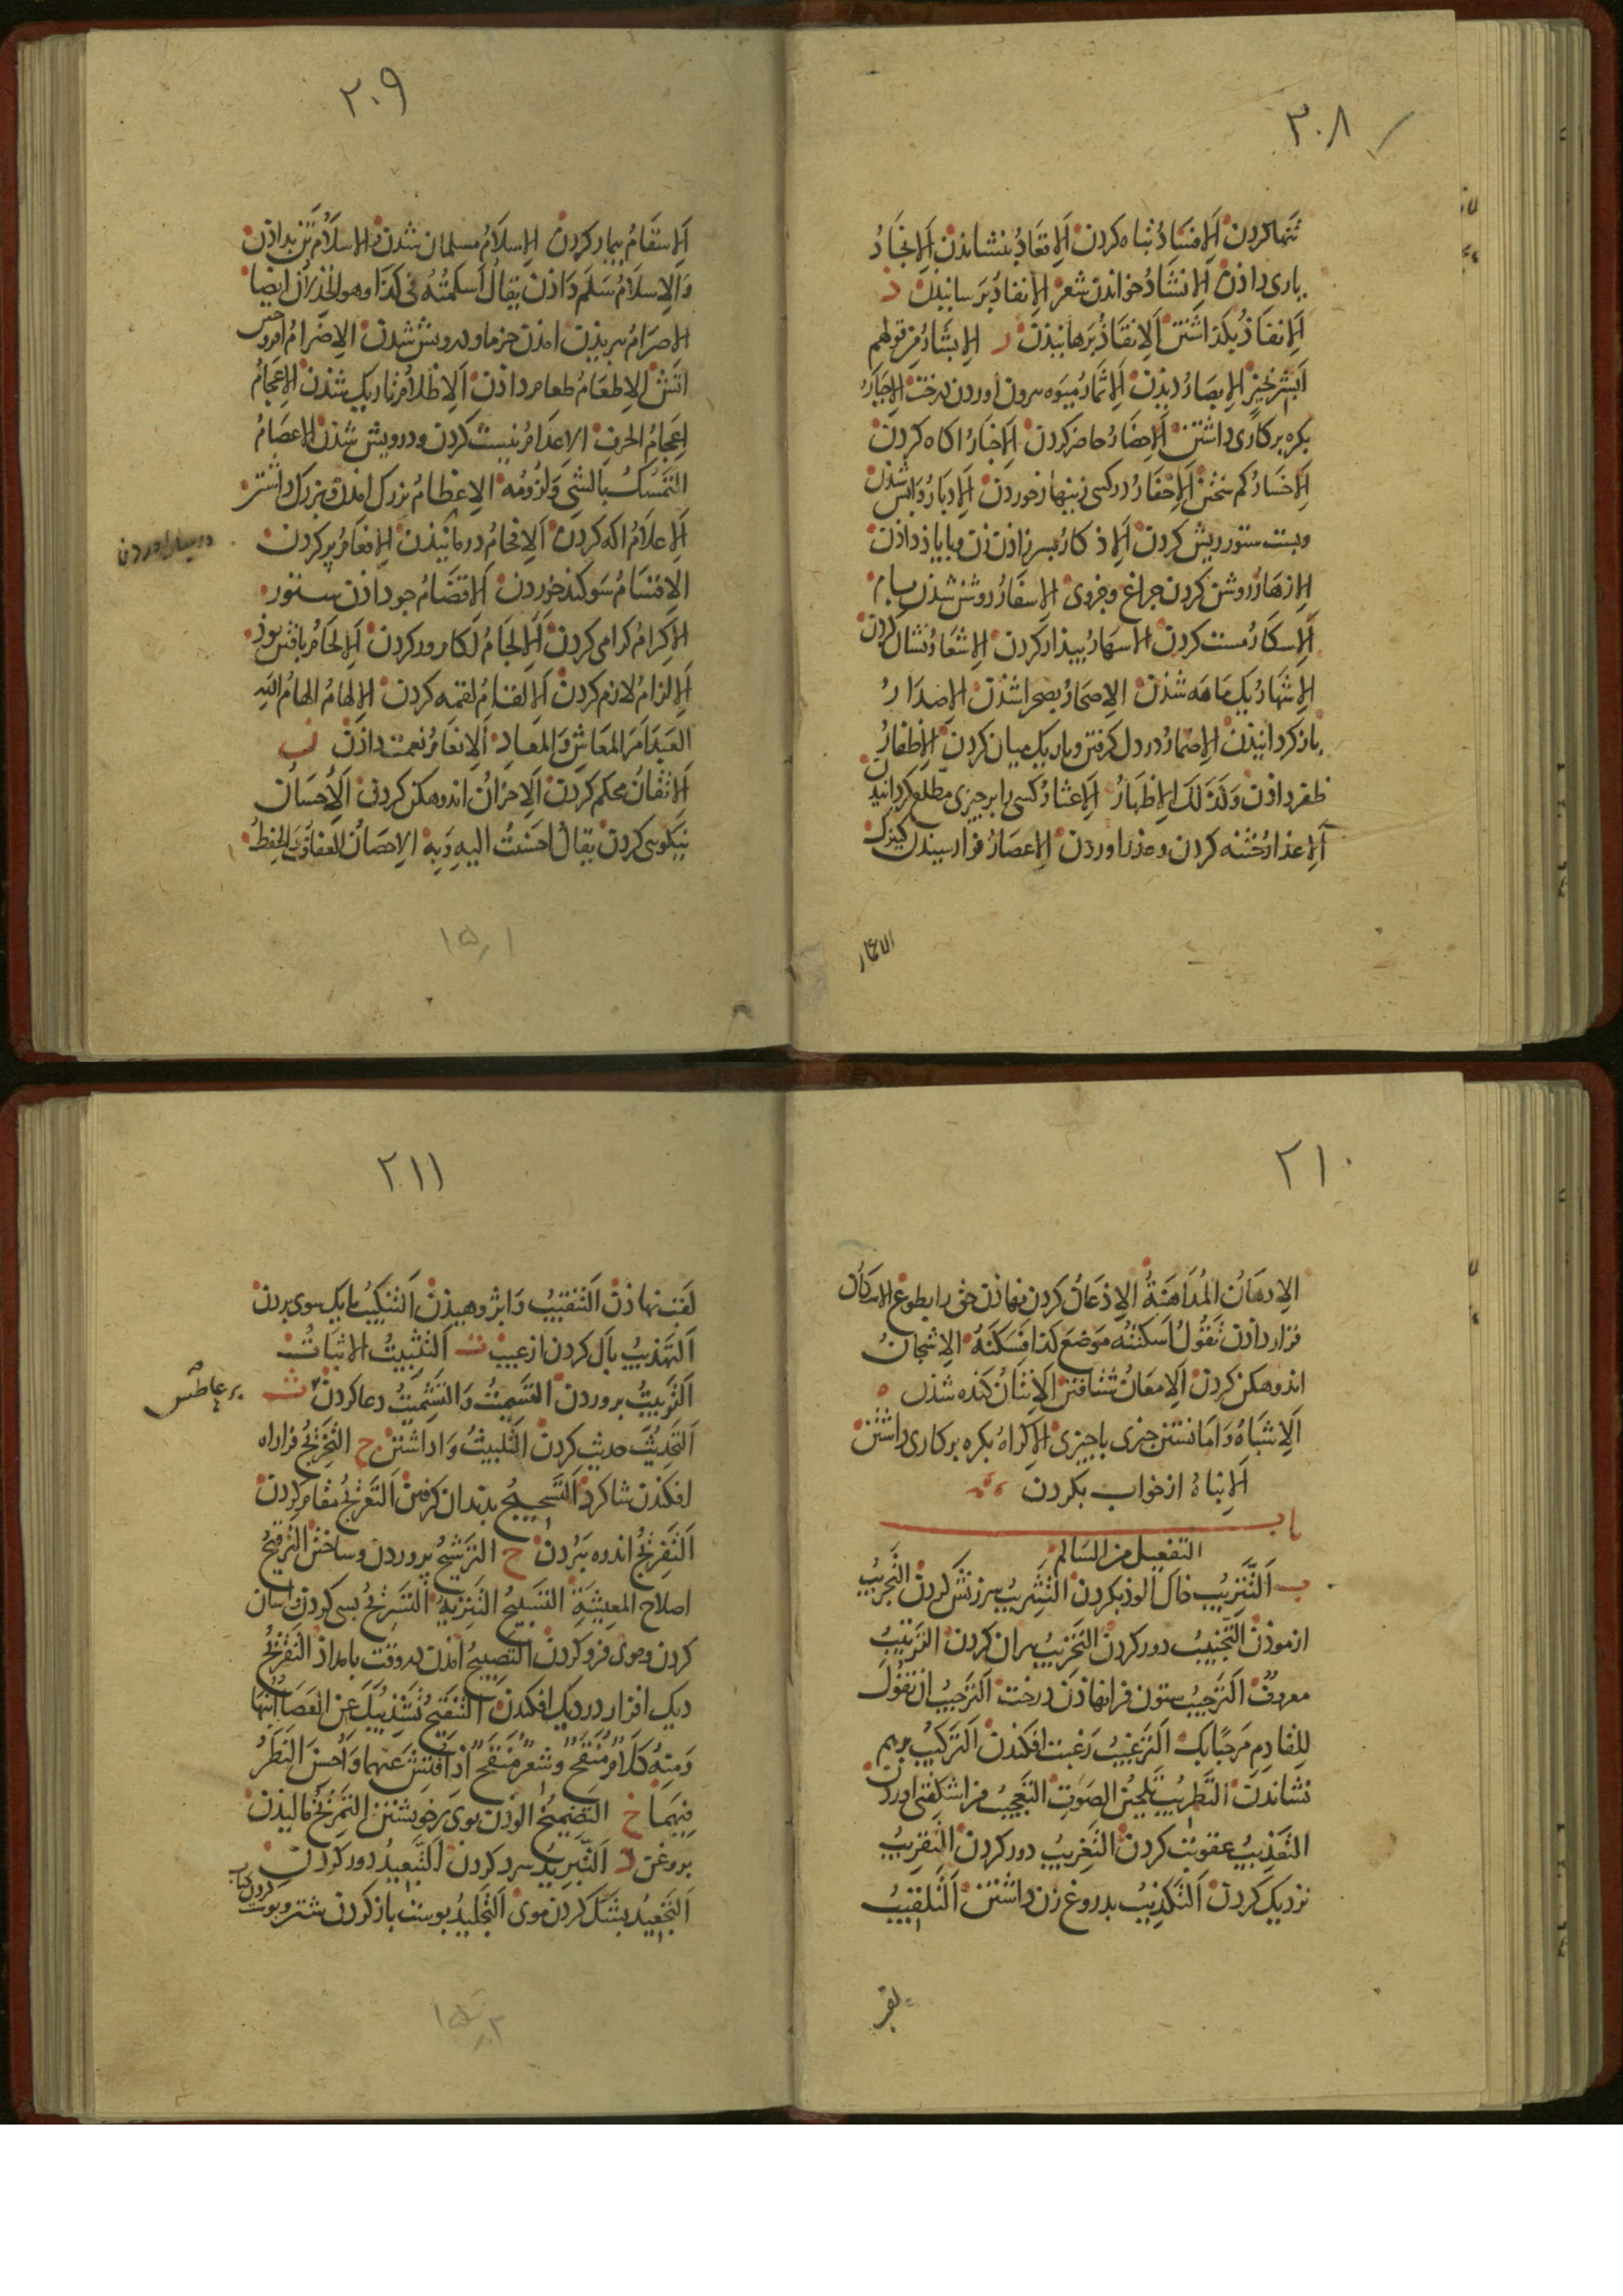 ٢٠٨
تنها کردن الإفساد تباه کردن الإقعاد بنشاندن الإنجاد
یاری داذن الإنشاد خواندن شعر الإنفاد برسانیذن ذ
الإنفاذ بکذاشتن الإنقاذ برهانیذن ر الإبشار من قولهم
أبشر بخیر الإبصار دیذن الإثمار میوه بیرون اوردن درخت الإجبار
بکره بر کاری داشتن الإحضار حاضر کردن الإخبار اکاه کردن
الإخسار کم سختن الإخفار در کسی زینهار خوردن الإدبار واپس شدن
وپشت ستور ریش کردن الإذکار پسر زاذن زن وبا یاذ داذن
الإزهار روشن کردن چراغ وجزوی الإسفار روشن شذن
الإسکار مست کردن الإسهار بیذار کردن الإشعار نشان کردن
الإشهار یک ماهه شذن الإصحار بصحرا شذن الإصدار
باز کردانیذن الإضمار در دل کرفتن وباریک میان کردن الإظفار
ظفر داذن وکذلک الإظهار الإعثار کسی را بر چیزی مطلع کردانیدن
الإعذار ختنه کردن وعذر اوردن الإعصار فرا رسیدن کنیزک
الاعمار
٢٠٩
الإسقام بیمار کردن الإسلام مسلمان شدن والإسلام تن بداذن
والإسلام سلم داذن یقال أسلمته فی کذا وهو الخذلان ایضا
الإصرام ببریذن امذن خرما ودرویش شدن الإضرام افروختن
اتش الإطعام طعام داذن الإظلام تاریک شذن الإعجام
إعجام الحرف الإعدام نیست کردن ودرویش شذن الإعصام
التمسک بالشی ولزومه الإعظام بزرک امذن وبزرک داشتن
الإعلام اکه کردن الإفحام درمانیذن الإفعام پر کردن
الإقسام سوکند خوردن الإقضام جو داذن ستور
الإکرام کرامی کردن الإلجام لکام ور کردن الإلحام بافتن بوذ
الإلزام لازم کردن الإلقام لقمه کردن الإلهام الهام الله
العبد أمر المعاش والمعاد الإنعام نعمت داذن ن
الإتقان محکم کردن الإحزان اندوهکن کردن الإحسان
نیکوی کردن یقال أحسنت الیه وبه الإحصان العفاف والحفظ
١٥١
٢١٠
الإدهان المداهنة الإذعان کردن نهاذن حق را بطوع الإسکان
قرار داذن تقول أسکنته موضع کذا فسکنه الإشجان
اندوهکن کردن الإمعان شتافتن الإنتان کنده شذن ه
الإشباه وامانستن چیزی با چیزی الإکراه بکره بر کاری داشتن
الإنباه از خواب بکردن
باب
التفعیل من السالم
ب التتریب خاک آلوذ بکردن التثریب سرزنش کردن التجریب
ازموذن التجنیب دور کردن التخریب ویران کردن الترتیب
معروف الترجیب ستون فرا نهاذن درخت الترحیب ان تقول
للقادم مرحبا بک الترغیب رغبت افکنذن الترکیب برهم
نشاندن التطریب تلحین الصوت التعجیب فرا شکفتی اوردن
التعذیب عقوبت کردن التغریب دور کردن التقریب
نزدیک کردن التکذیب بدروغ زن داشتن التلقیب
لقب
٢١١
لقب نهاذن التنقیب وا پژوهیذن التنکیب با یک سوی بردن
التهذیب پاک کردن از عیب ت التثبیت الإثبات
التربیت پروردن التسمیت والتشمیت دعا کردن ث
بر عاطس
التحدیث حدیث کردن التلبیث واداشتن ج التخریج فرا راه
افکنذن شاکرد التسحیج بدندان کرفتن التعریج مقام کردن
التفریج اندوه ببردن ح الترشیح پروردن وساختن الترقیح
اصلاح المعیشة التسبیح التنزیه التسریح کسی کردن واسان
کردن وموی فرو کردن التصبیح امذن بوقت بامداذ التقزیح
دیک افزار در دیک افکندن التنقیح تشذیبک عن العصا أبنها
ومنه کلام منقح وشعر منقح اذا فتش عنهما وأحسن النظر
فیهما خ التضمیخ الوذن بوی بر خویشتن التمریخ مالیذن
بروغن د التبرید سرد کردن التبعید دور کردن
التجعید بشنک کردن موی التجلید پوست باز کردن شتر وپوست کردن کتاب
١٥٢